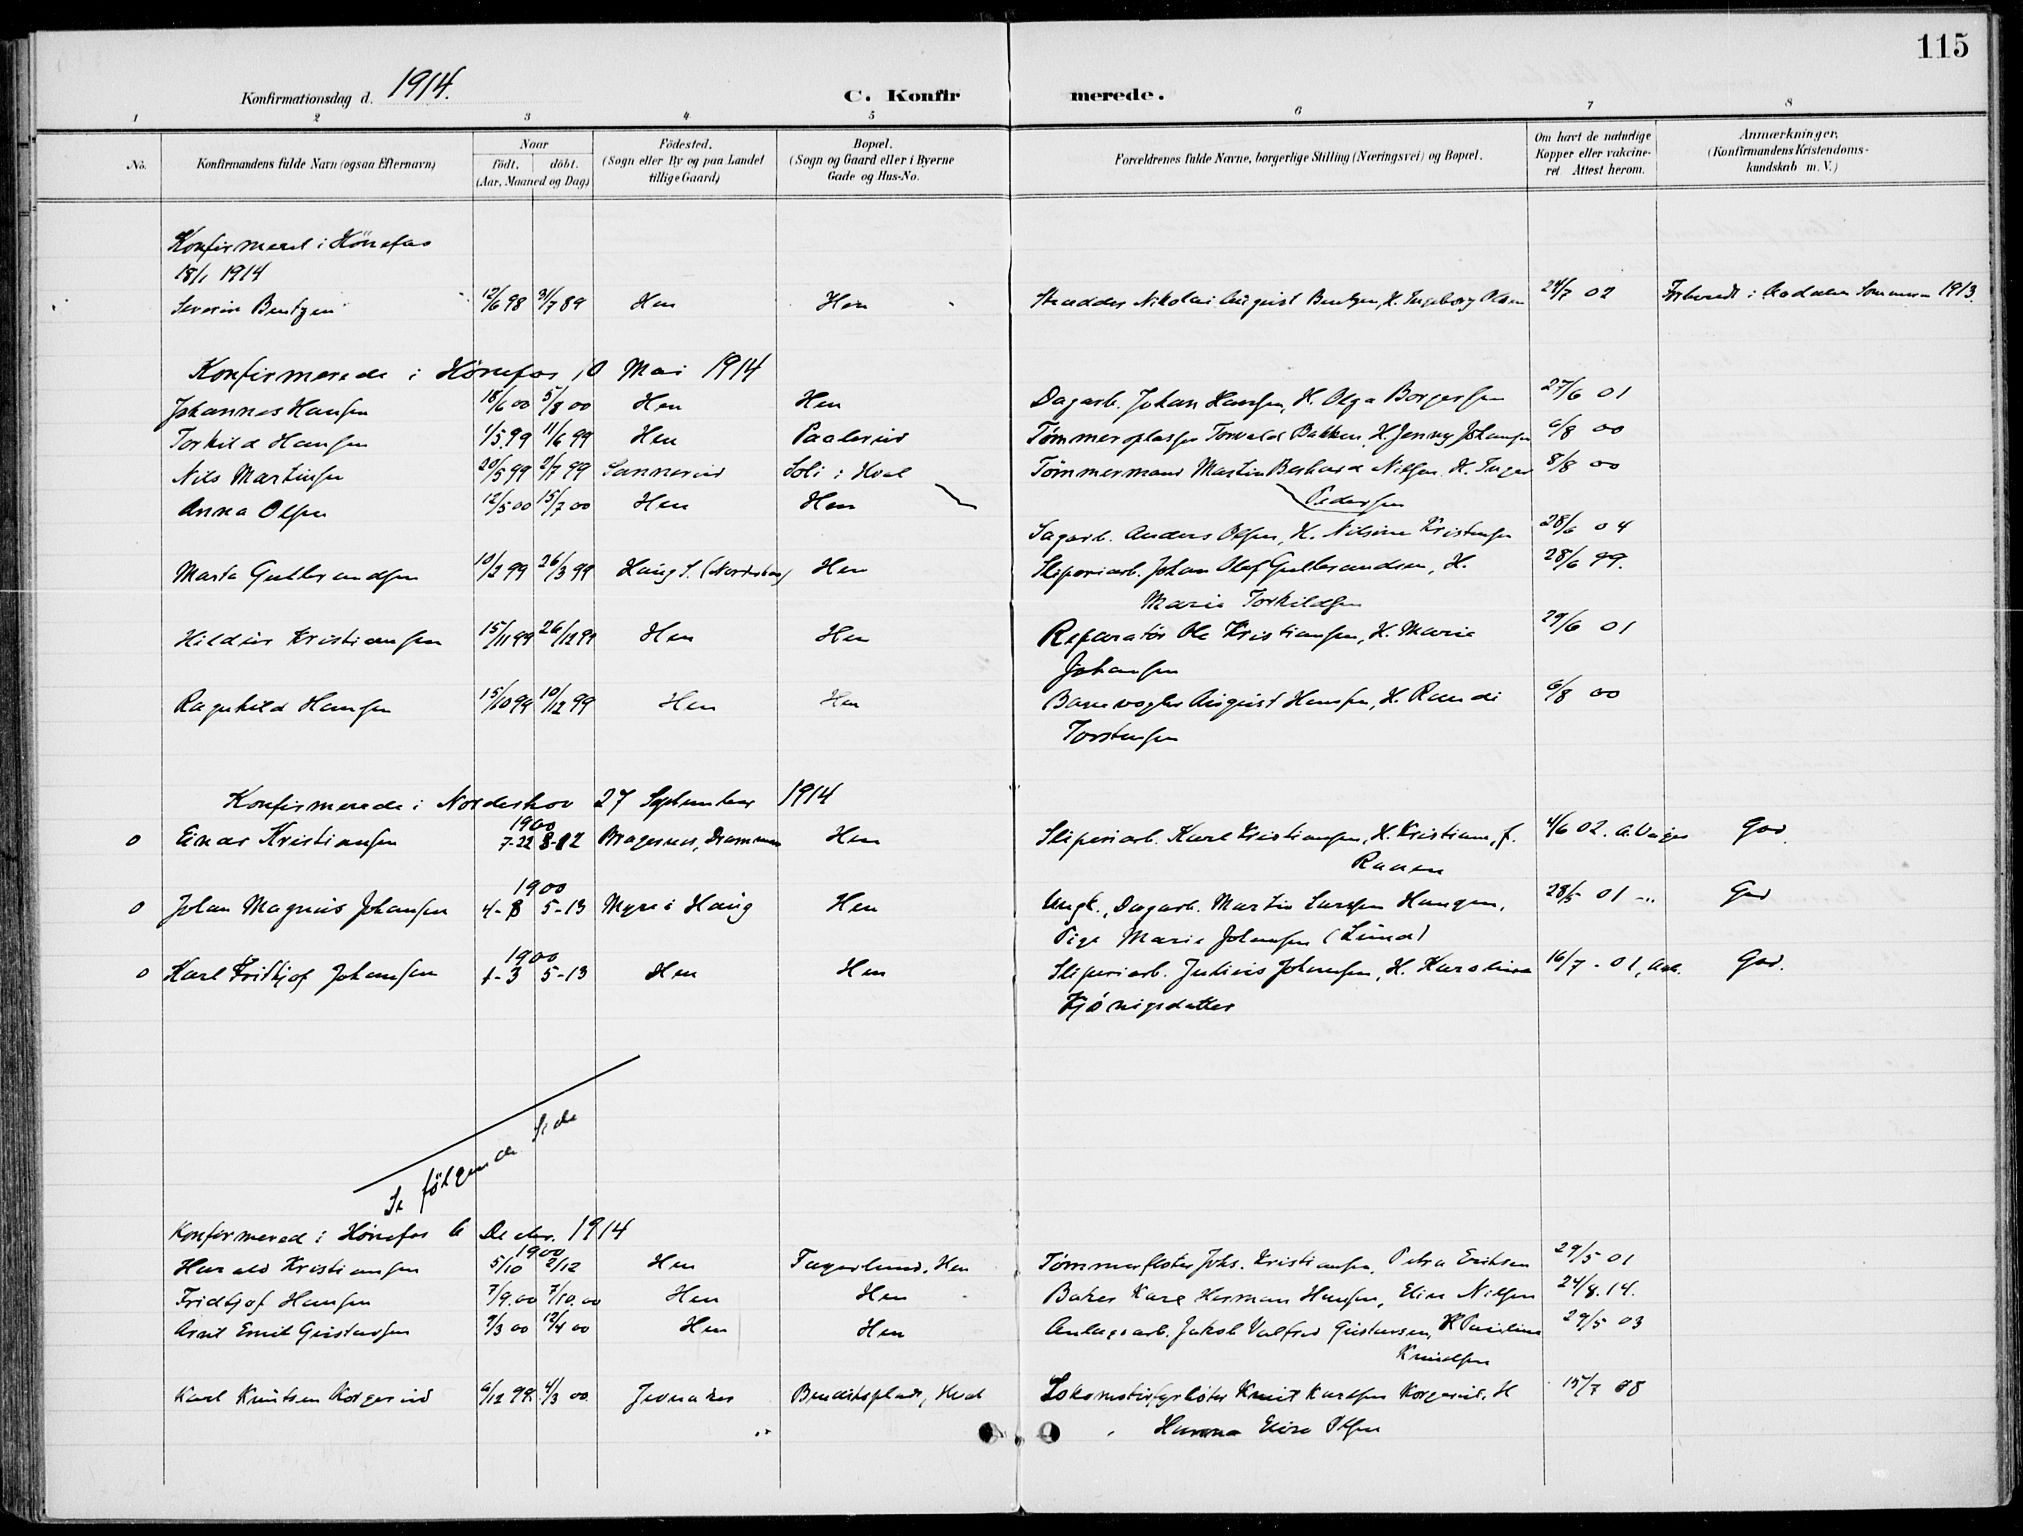 115
Konfirmationsdag d. 1914.
C. Konfir merede.
1 2 3 4 5 6 7 8
No.
Konfirmandens fulde Navn (ogsaa Efternavn)
Naar
födt. döbt.
(Aar, Maaned og Dag)
Födested.
(Sogn eller By og paa Landet
tillige Gaard)
Bopæl.
(Sogn og Gaard eller i Byerne
Gade og Hus-No.
Forældrenes fulde Navne, borgerlige Stilling (Næringsvei) og Bopæl.
Om havt de naturlige
Kopper eller vakcine-
ret Attest herom.
Anmærkninger,
(Konfirmandens Kristendoms-
kundskab m. V.)
Konfirmeret i Hönefos
18/1 1914
Severin Bentzen 12/6 98 31/7 89 Hen Hen Skrædder Nikolai August Bentzen, H. Ingeborg Olsen 24/7 02 Forberedt i Aadalen Sommeren 1913.
Konfirmerede i Hönefos 10 Mai 1914
Johannes Hansen 18/6 00 5/8 00 Hen Hen Dagarb. Johan Hansen, H. Olga Borgersen 27/6 01
Torkild Hansen 1/5 99 11/6 99 Hen Paalerud Tømmeropasser Torvald Bakken, H. Jenny Johansen 6/8 00
Nils Martinsen 20/5 99 2/7 99 Sannerud Soli i Hval Tømmermand Martin Berhard Nilsen, H. Inger
Pedersen 8/8 00
Anna Olsen 12/5 00 15/7 00 Hen Hen Sagarb. Anders Olsen, H. Nilsine Kristensen 28/6 04
Marta Gulbrandsen 10/2 99 26/3 99 Haug S. (Norderhov) Hen Sliperiarb. Johan Olaf Gulbrandsen, H. 28/6 99.
Marie Torkildsen
Hildur Kristiansen 15/11 99 26/12 99 Hen Hen Reparatör Ole Kristiansen, H. Marie 29/6 01
Johansen
Ragnhild Hansen 15/10 99 10/12 99 Hen Hen Banevogter August Hansen, H. Randi 6/8 00
Torstensen
Konfirmerede i Norderhov 27 September 1914
1900
0 Einar Kristiansen 7-22 8-12 Bragernes, Drammen Hen Sliperiarb. Karl Kristiansen, H. Kristiane, f. 4/6 02. God.
Raaen
1900
0 Johan Magnus Johansen 4-8 5-13 Myre i Haug Hen Ungk., Dagarb. Martin Larssen Haugen, 28/5 01 God
Pige Marie Johansen (Lund)
1900
0 Karl Fridtjof Johansen 4-3 5-13 Hen Hen Sliperiarb. Julius Johansen, H. Karoline 16/7 - 01, God.
Kjönigsdatter
Se følgende Side
Konfirmered i Hönefos 6 Decbr. 1914
1900
Harald Kristiansen 5/10 2/12 Hen Fagerlund, Hen Tømmerfløter Johs. Kristiansen, Petra Eriksen 29/5 01
Fridtjof Hansen 7/9.00 7/10.00 Hen Hen Baker Karl Herman Hansen, Elise Nilsen 24/8.14.
Arnt Emil Gustavsen 9/3 00 12/4 00 Hen Hen Anlægsarb. Jakob Valfred Gustavsen, H Pauline 29/5 03
Knudsen
Karl Knutsen Korgerud 6/12 99. 4/3 00. Jevnaker Benditsplads, Hval Lokomotivfyrbøter Knut Karlsen Korgerud, H 15/7 08
Hanna Elise Olsen